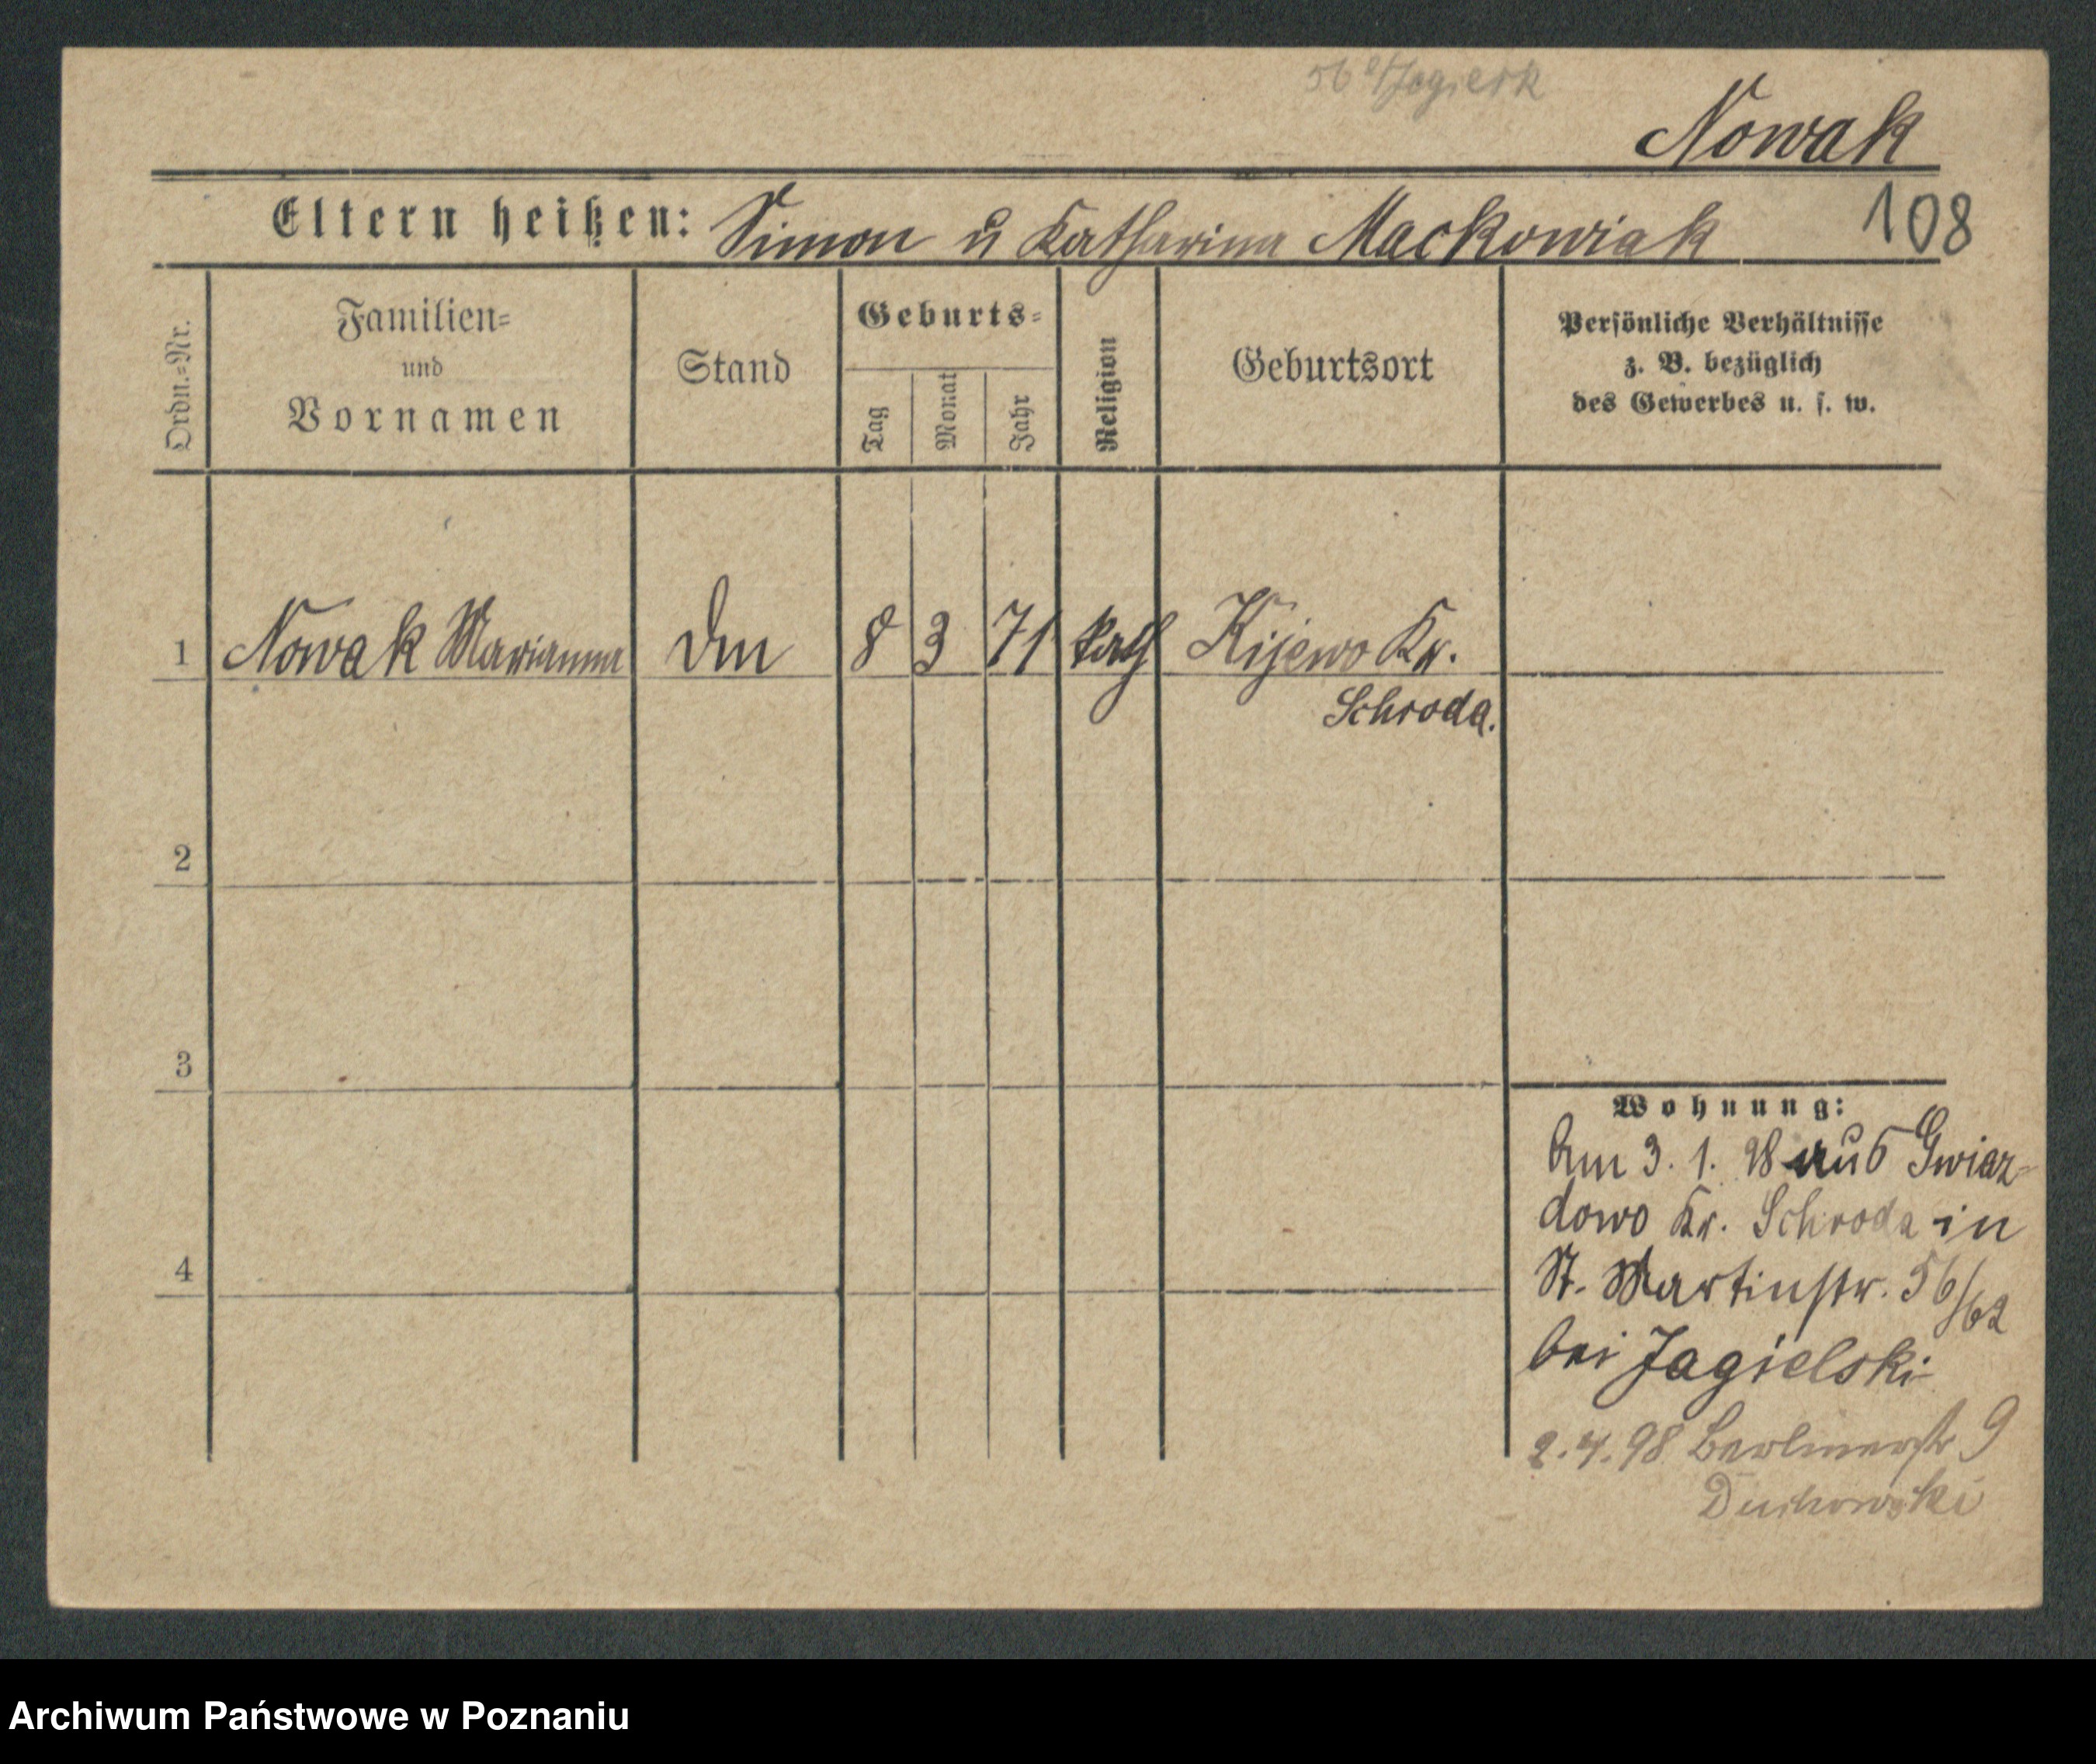 Nowak
Eltern heißen: Simon u Katharina Mackowiak 108
Ordn.=Nr.
Familien=
und
Vornamen
Stand
Geburts=
Tag
Monat
Jahr
Religion
Geburtsort
Persönliche Verhältnisse
z. B. bezüglich
des Gewerbes u. s. w.
1 Nowak Marianna Dm 8 3 71 kath Kijewo Kr.
Schroda.
2
3
4
Wohnung:
Am 3. 1. 98 aus Gwiaz-
dowo Kr. Schroda in
St. Martinstr. 56/62
bei Jagielski
2.4.98 Berlinerstr 9
Duchowski
Archiwum Państwowe w Poznaniu